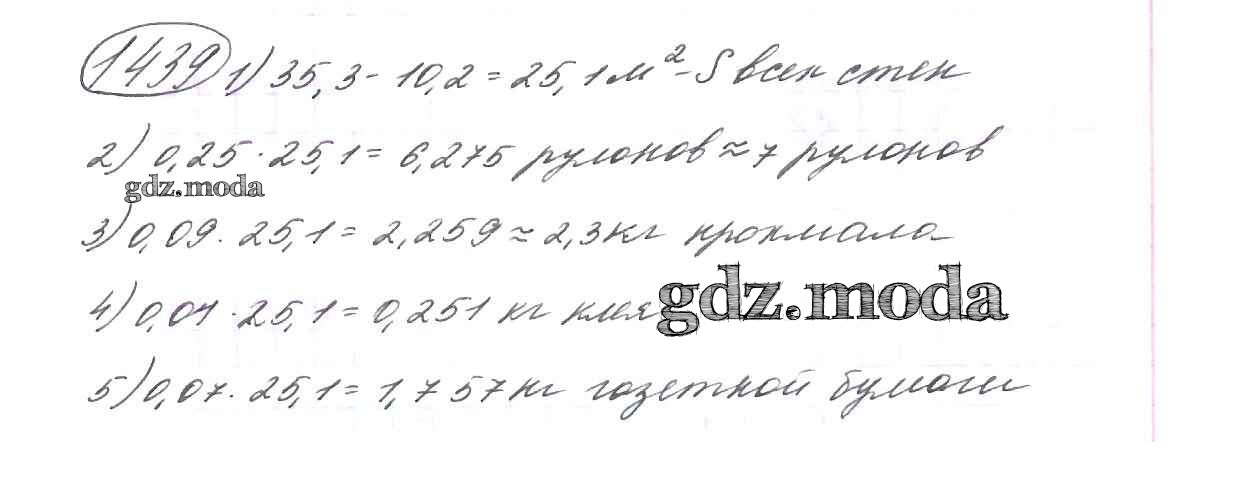 1439 1) 35,3 - 10,2 = 25,1 м² - S всех стен
2) 0,25 · 25,1 = 6,275 рулонов ≈ 7 рулонов
gdz.moda
3) 0,09 · 25,1 = 2,259 ≈ 2,3 кг крохмала
4) 0,01 · 25,1 = 0,251 кг клея
gdz.moda
5) 0,07 · 25,1 = 1,757 кг газетной бумаги